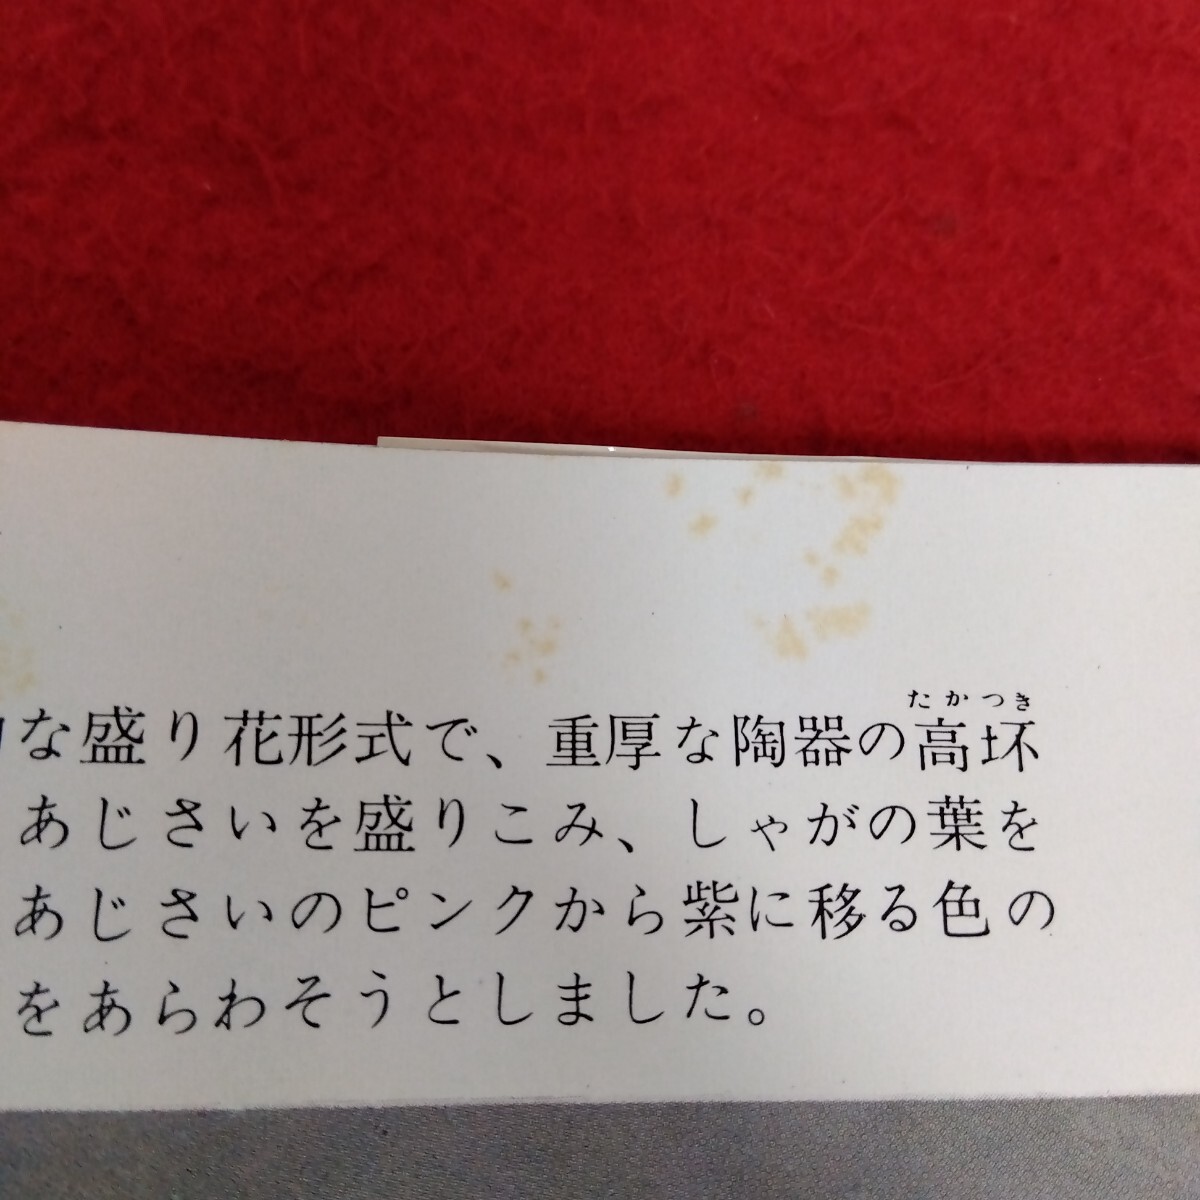 な盛り花形式で、重厚な陶器の高坏
たかつき
あじさいを盛りこみ、しゃがの葉を
あじさいのピンクから紫に移る色の
をあらわそうとしました。